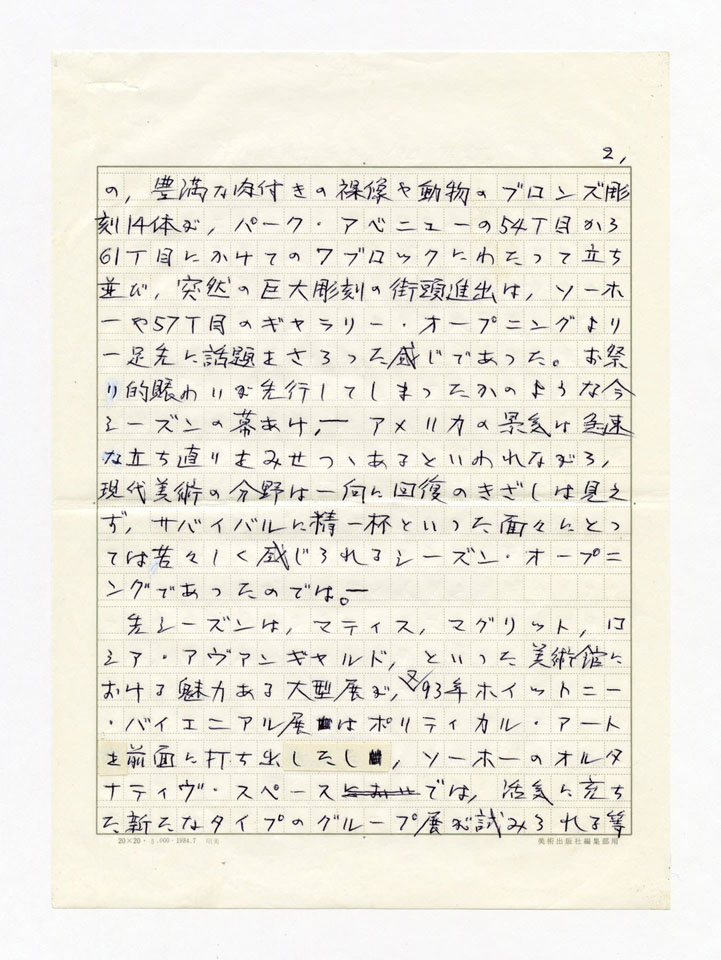 2,
の，豊満な肉付きの裸像や動物のブロンズ彫
刻14体が，パーク・アベニューの54丁目から
61丁目にかけての7ブロックにわたって立ち
並び，突然の巨大彫刻の街頭進出は，ソーホ
ーや57丁目のギャラリー・オープニングより
一足先に話題をさらった感じであった。お祭
り的賑わいが先行してしまったかのような今
シーズンの幕あけ，― アメリカの景気は急速
な立ち直りをみせつゝあるといわれながら，
現代美術の分野は一向に回復のきざしは見え
ず，サバイバルに精一杯といった面々にとっ
ては苦々しく感じられるシーズン・オープニ
ングであったのでは。―
先シーズンは，マティス，マグリット，ロ
シア・アヴァンギャルド，といった美術館に
おける魅力ある大型展が，又'93年ホイットニー
・バイエニアル展はポリティカル・アート
を前面に打ち出したし，ソーホーのオルタ
ナティヴ・スペースでは，活気に充ち
た新たなタイプのグループ展が試みられる等
20×20・5,000・1984.7
美術出版社編集部用